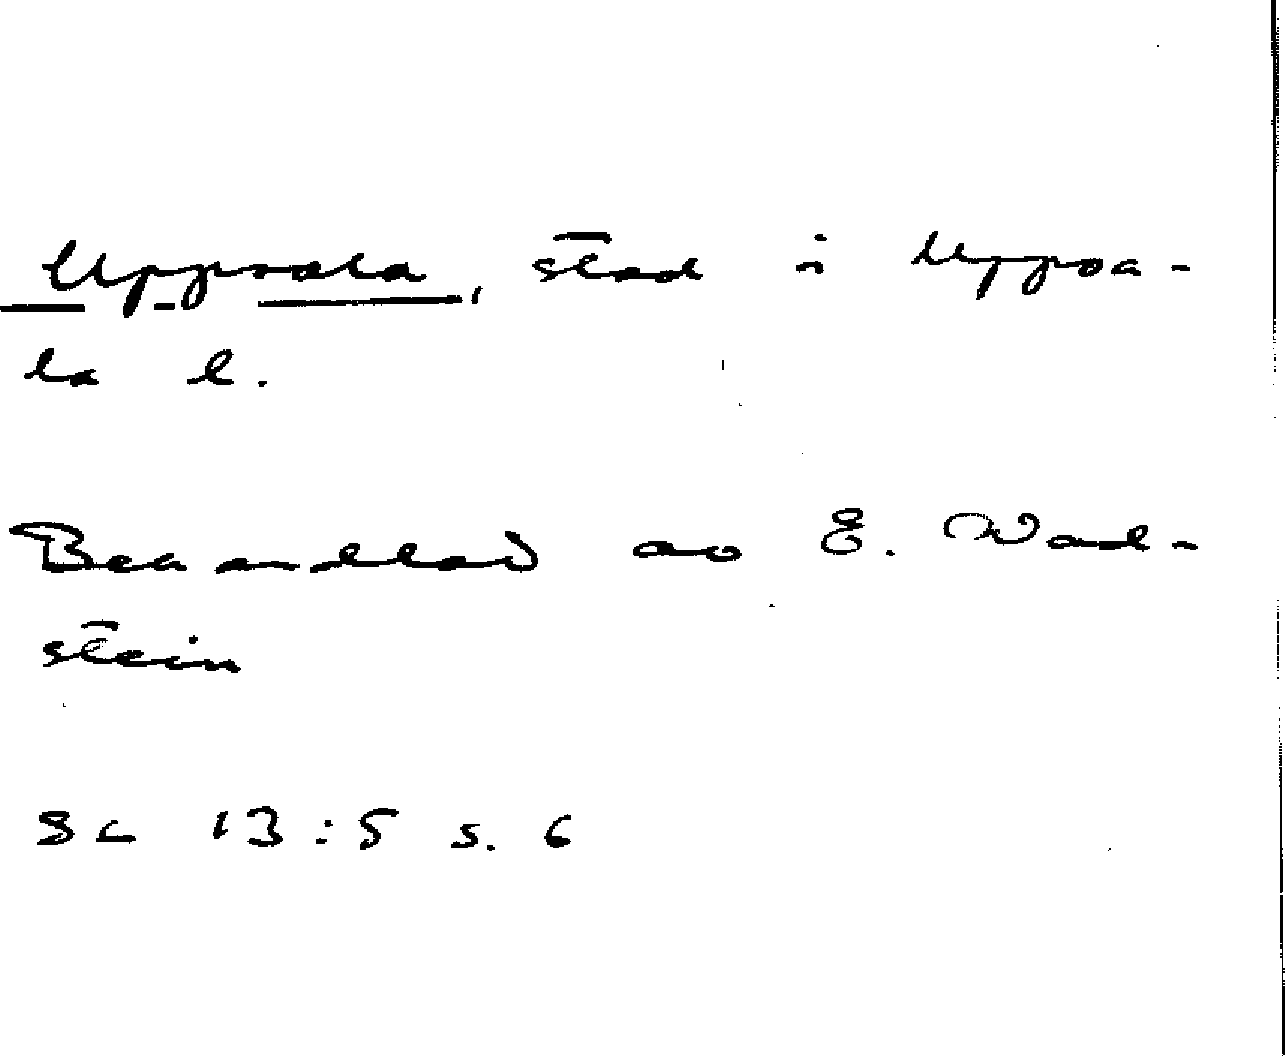 Uppsala, stad i Uppsa-
la l.
Behandlad av E. Wad-
stein
SL 13:5 s. 6